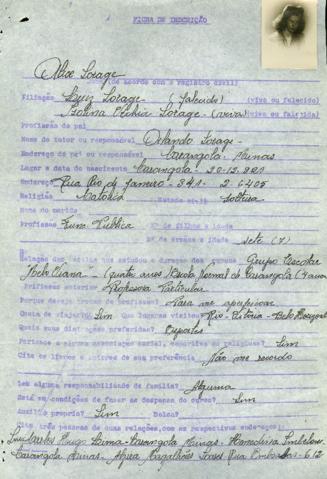 FICHA DE INSCRIÇÃO
Alce Lorage
(de acordo com o registro civil)
Filiação Luiz Lorage (falecido) (vivo ou falecido)
Lorage (viva) (viva ou falecida)
Profissão do pai
Nome do tutor ou responsável Orlando Lorage
Endereço do pai ou responsável Carangola. Minas
Lugar e data do nascimento Carangola.
Endereço Rua Rio de Janeiro - 341 - 2-6405
Religião Católica Estado civil Solteira
Nome do marido
Profissão Fun. Publica Nº de filhos e idade
Nº de irmãos e idade sete (7)
Relação das escolas em que estudou e duração dos cursos Grupo Escolar
(quatro anos) Escola Normal de Carangola (4 anos
Profissões anteriores Professora Particular
Porque deseja trocar de profissão? Para me aperfeiçoar
Gosta de viajar? Sim Que lugares visitou? Rio - Vitória - Belo Horizonte
Quais suas distrações preferidas? Esportes
Pertence a alguma associação social, esportiva ou religiosa? Sim
Cite os livros e autores de sua preferência Não me recordo
Tem alguma responsabilidade de família? Alguma
Está em condições de fazer as despesas do curso? Sim
Auxílio próprio? Sim Bolsa?
Cite três pessoas de suas relações, com os respectivos endereços:
Hugo Lima - Carangola Minas -
Carangola Minas - Magalhães Rua - 612